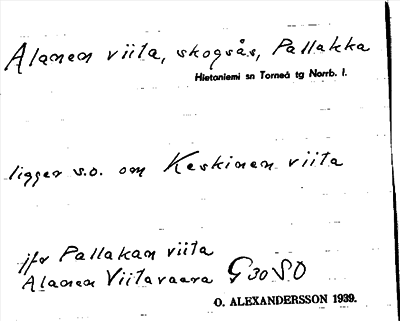 Alanen viita, skogsås, Pallakka
Hietaniemi sn Torneå tg Norrb. l.
ligger s.o. om Keskinen viita
jfr Pallakan viita
Alanen Viitavaara G30SO
O. ALEXANDERSSON 1939.